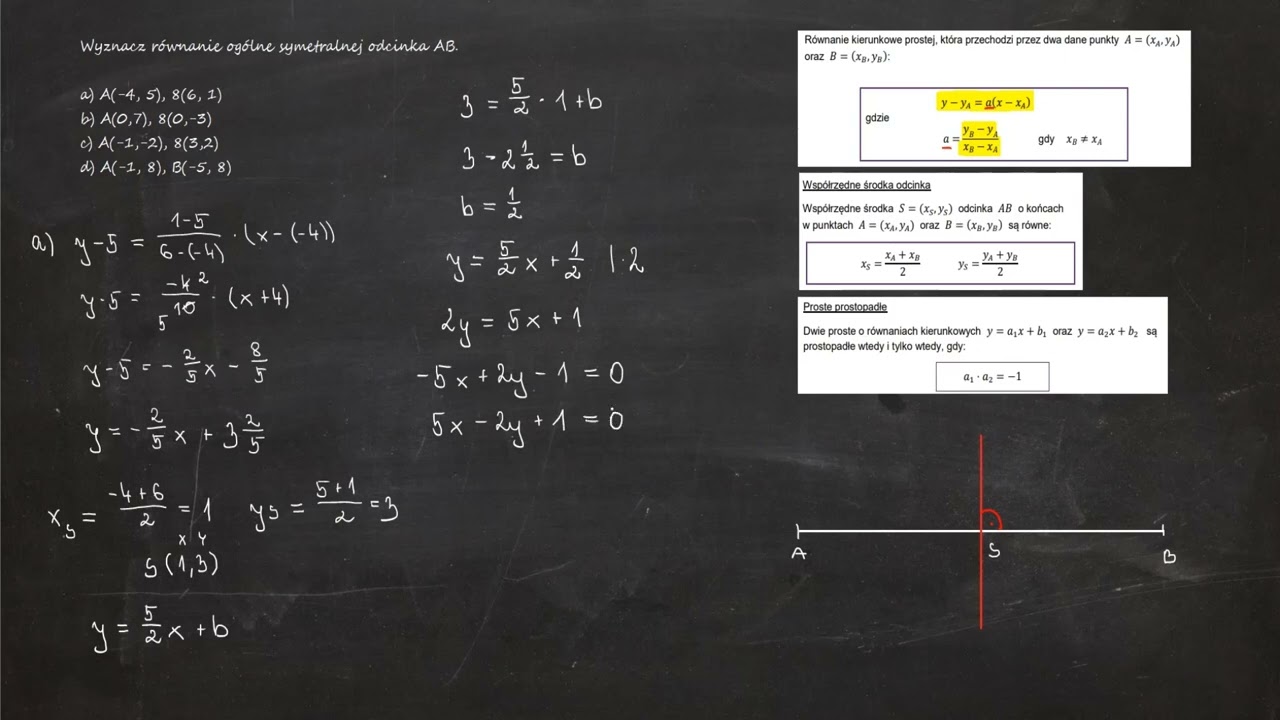 Wyznacz równanie ogólne symetralnej odcinka AB.
a) A(-4, 5), 8(6, 1)
b) A(0,7), 8(0,-3)
c) A(-1,-2), 8(3,2)
d) A(-1, 8), B(-5, 8)
a) y-5 = \frac{1-5}{6-(-4)} · (x-(-4))
y-5 = \frac{-4}{10} · (x+4)
2
5
y-5 = -\frac{2}{5}x - \frac{8}{5}
y = -\frac{2}{5}x + 3\frac{2}{5}
x_S = \frac{-4+6}{2} = 1 y_S = \frac{5+1}{2} = 3
x y
S(1,3)
y = \frac{5}{2}x + b
3 = \frac{5}{2} · 1 + b
3 - 2\frac{1}{2} = b
b = \frac{1}{2}
y = \frac{5}{2}x + \frac{1}{2} |·2
2y = 5x + 1
-5x + 2y - 1 = 0
5x - 2y + 1 = 0
Równanie kierunkowe prostej, która przechodzi przez dwa dane punkty A = (x_A, y_A)
oraz B = (x_B, y_B):
y − y_A = a(x − x_A)
gdzie
a = \frac{y_B − y_A}{x_B − x_A} gdy x_B ≠ x_A
Współrzędne środka odcinka
Współrzędne środka S = (x_S, y_S) odcinka AB o końcach
w punktach A = (x_A, y_A) oraz B = (x_B, y_B) są równe:
x_S = \frac{x_A + x_B}{2} y_S = \frac{y_A + y_B}{2}
Proste prostopadłe
Dwie proste o równaniach kierunkowych y = a_1x + b_1 oraz y = a_2x + b_2 są
prostopadłe wtedy i tylko wtedy, gdy:
a_1 · a_2 = −1
A S B